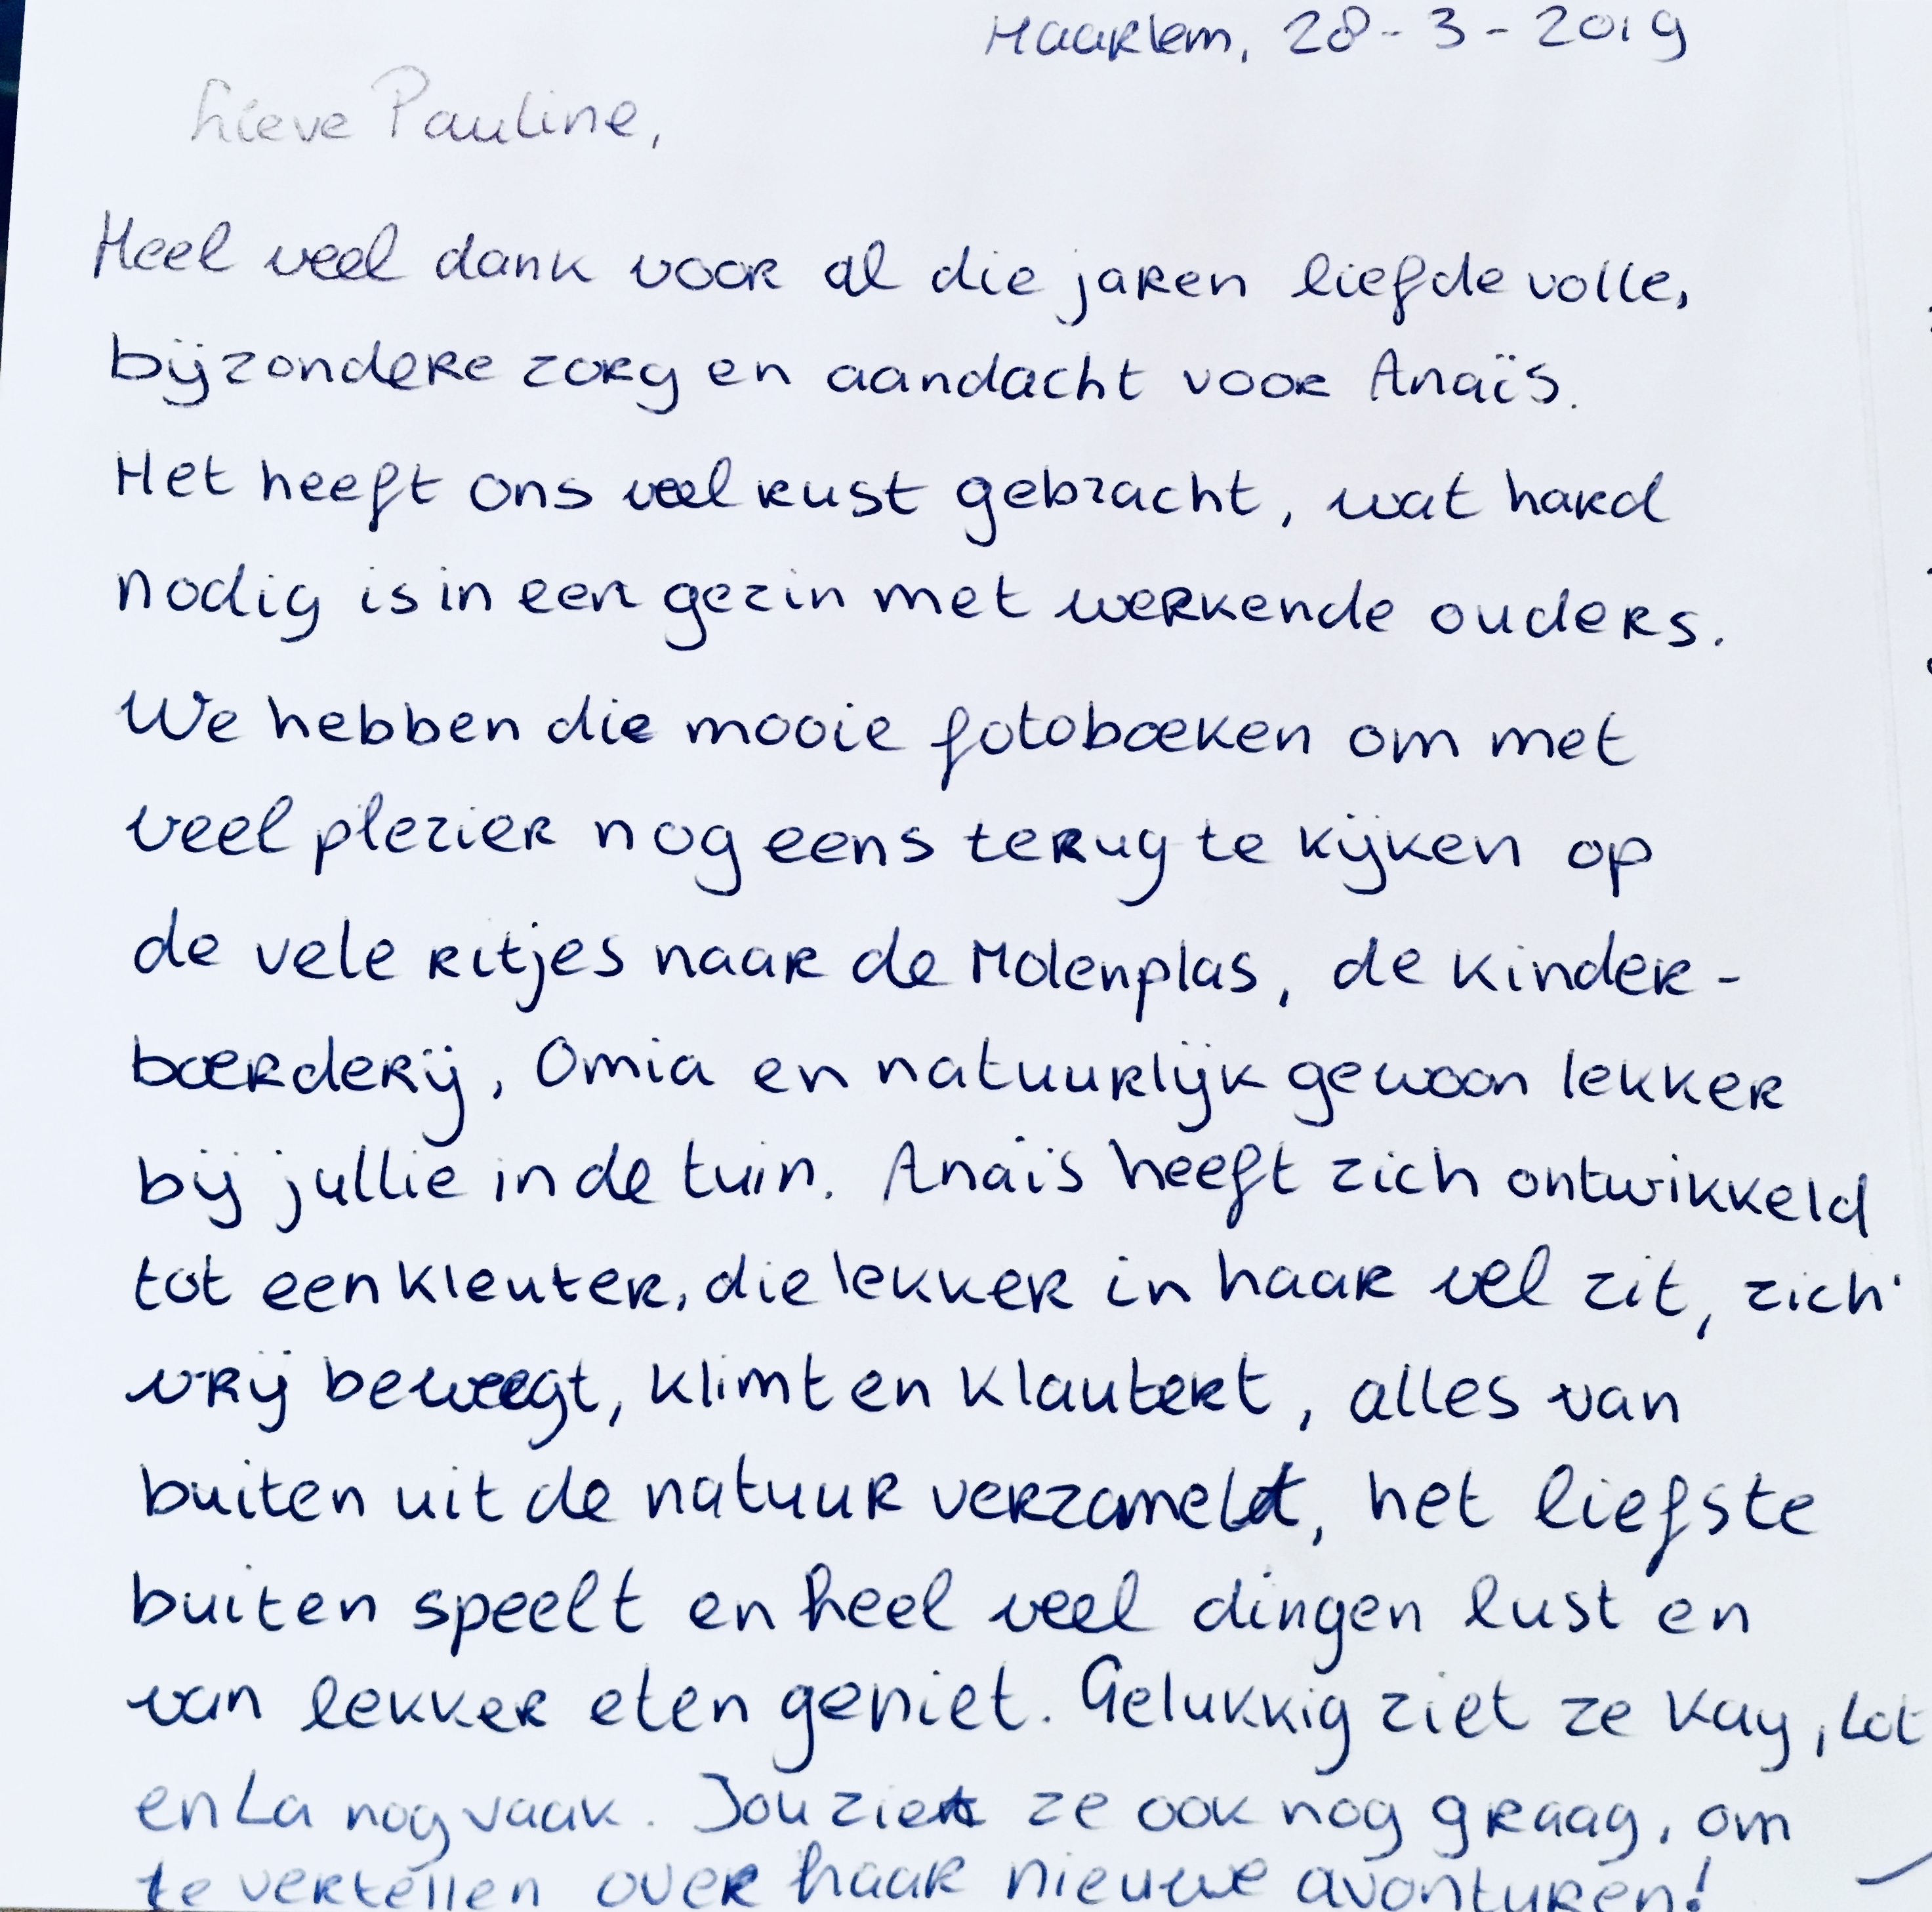 Haarlem, 28-3-2019
Lieve Pauline,
Heel veel dank voor al die jaren liefdevolle,
bijzondere zorg en aandacht voor Anaïs.
Het heeft ons veel rust gebracht, wat hard
nodig is in een gezin met werkende ouders.
We hebben die mooie fotoboeken om met
veel plezier nog eens terug te kijken op
de vele ritjes naar de Molenplas, de kinder-
boerderij, Omia en natuurlijk gewoon lekker
bij jullie in de tuin. Anaïs heeft zich ontwikkeld
tot een kleuter, die lekker in haar vel zit, zich
vrij beweegt, klimt en klautert, alles van
buiten uit de natuur verzamelt, het liefste
buiten speelt en heel veel dingen lust en
van lekker eten geniet. Gelukkig ziet ze Kay, Lot
en La nog vaak. Jou ziet ze ook nog graag, om
te vertellen over haar nieuwe avonturen!